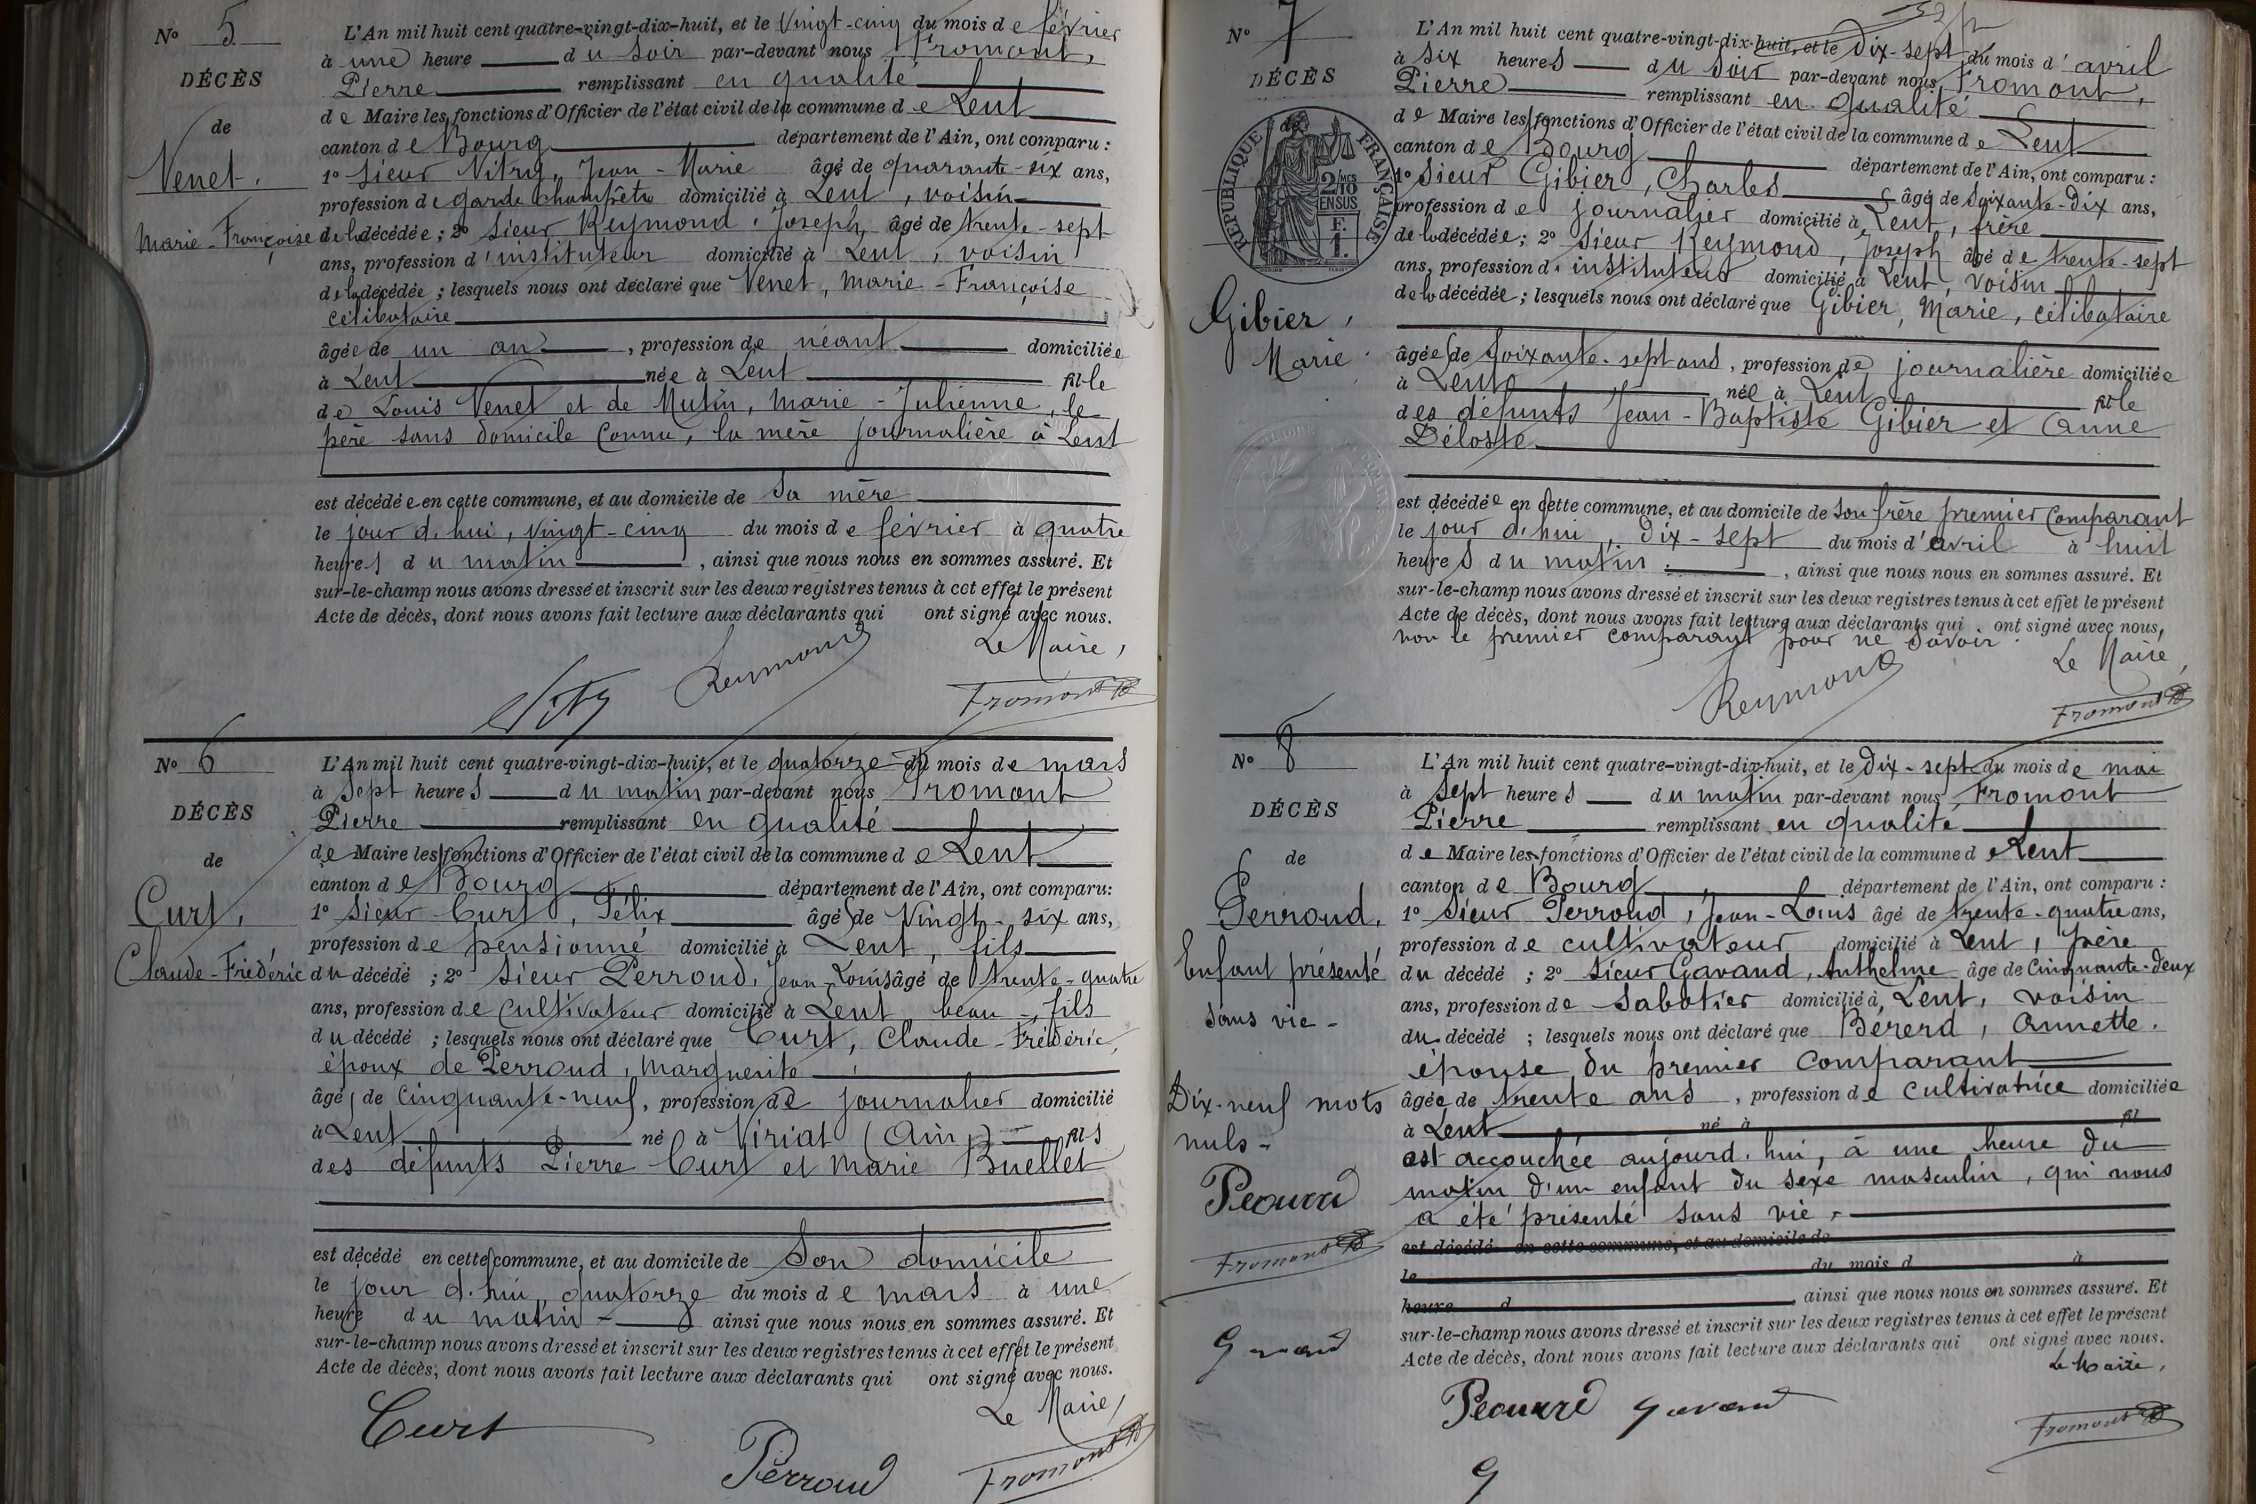 N° 5
DÉCÈS
de
Venet,
Marie-Françoise
L'An mil huit cent quatre-vingt-dix-huit, et le vingt-cinq du mois de février
à une heure du soir par-devant nous Fromont,
Pierre remplissant en qualité
de Maire les fonctions d'Officier de l'état civil de la commune de Lent
canton de Bourg département de l'Ain, ont comparu :
1° sieur Vitry, Jean-Marie âgé de quarante-six ans,
profession de garde champêtre domicilié à Lent, voisin
de la décédée ; 2° sieur Reymond, Joseph, âgé de trente-sept
ans, profession d'instituteur domicilié à Lent, voisin
de la décédée ; lesquels nous ont déclaré que Venet, Marie-Françoise
célibataire
âgée de un an, profession de néant domiciliée
à Lent née à Lent fille
de Louis Venet et de Mutin, Marie-Julienne, le
père sans domicile connu, la mère journalière à Lent
est décédée en cette commune, et au domicile de sa mère
le jour d'hui, vingt-cinq du mois de février à quatre
heures du matin, ainsi que nous nous en sommes assuré. Et
sur-le-champ nous avons dressé et inscrit sur les deux registres tenus à cet effet le présent
Acte de décès, dont nous avons fait lecture aux déclarants qui ont signé avec nous.
Le Maire,
Vitry Reymond Fromont P
N° 6
DÉCÈS
de
Curt,
Claude-Frédéric
L'An mil huit cent quatre-vingt-dix-huit, et le quatorze du mois de mars
à sept heures du matin par-devant nous Fromont
Pierre remplissant en qualité
de Maire les fonctions d'Officier de l'état civil de la commune de Lent
canton de Bourg département de l'Ain, ont comparu :
1° sieur Curt, Félix âgé de vingt-six ans,
profession de pensionné domicilié à Lent, fils
du décédé ; 2° sieur Perroud, Jean-Louis âgé de trente-quatre
ans, profession de cultivateur domicilié à Lent beau-fils
du décédé ; lesquels nous ont déclaré que Curt, Claude-Frédéric,
époux de Perroud, Marguerite
âgé de cinquante-neuf, profession de journalier domicilié
à Lent né à Viriat (Ain) fils
des défunts Pierre Curt et Marie Buellet
est décédé en cette commune, et au domicile de son domicile
le jour d'hui, quatorze du mois de mars à une
heure du matin - ainsi que nous nous en sommes assuré. Et
sur-le-champ nous avons dressé et inscrit sur les deux registres tenus à cet effet le présent
Acte de décès, dont nous avons fait lecture aux déclarants qui ont signé avec nous.
Le Maire,
Curt Perroud Fromont P
N° 7
DÉCÈS
de
RÉPUBLIQUE FRANÇAISE
2/10 MES EN SUS
F. 1.
Gibier,
Marie
L'An mil huit cent quatre-vingt-dix-huit, et le dix-sept du mois d'avril
à six heures du soir par-devant nous Fromont,
Pierre remplissant en qualité
de Maire les fonctions d'Officier de l'état civil de la commune de Lent
canton de Bourg département de l'Ain, ont comparu :
1° sieur Gibier, Charles âgé de soixante-dix ans,
profession de journalier domicilié à Lent, frère
de la décédée ; 2° sieur Reymond, Joseph âgé de trente-sept
ans, profession d'instituteur domicilié à Lent, voisin
de la décédée ; lesquels nous ont déclaré que Gibier, Marie, célibataire
âgée de soixante-sept ans, profession de journalière domiciliée
à Lent née à Lent fille
des défunts Jean-Baptiste Gibier et Anne
Déloste
est décédée en cette commune, et au domicile de son frère premier comparant
le jour d'hui, dix-sept du mois d'avril à huit
heures du matin, ainsi que nous nous en sommes assuré. Et
sur-le-champ nous avons dressé et inscrit sur les deux registres tenus à cet effet le présent
Acte de décès, dont nous avons fait lecture aux déclarants qui ont signé avec nous,
non le premier comparant pour ne savoir.
Le Maire,
Reymond Fromont P
N° 8
DÉCÈS
de
Perroud,
Enfant présenté
sans vie -
Dix-neuf mots
nuls -
Fromont P
Gavand
L'An mil huit cent quatre-vingt-dix-huit, et le dix-sept du mois de mai
à sept heures du matin par-devant nous Fromont
Pierre remplissant en qualité
de Maire les fonctions d'Officier de l'état civil de la commune de Lent
canton de Bourg département de l'Ain, ont comparu :
1° sieur Perroud, Jean-Louis âgé de trente-quatre ans,
profession de cultivateur domicilié à Lent, père
du décédé ; 2° sieur Gavand, Anthelme âgé de cinquante-deux
ans, profession de sabotier domicilié à Lent, voisin
du décédé ; lesquels nous ont déclaré que Bererd, Annette.
épouse du premier comparant
âgée de trente ans, profession de cultivatrice domiciliée
à Lent né à fil
est accouchée aujourd'hui, à une heure du
matin d'un enfant du sexe masculin, qui nous
a été présenté sans vie.
est décédé en cette commune, et au domicile de
le du mois d à
heure d, ainsi que nous nous en sommes assuré. Et
sur-le-champ nous avons dressé et inscrit sur les deux registres tenus à cet effet le présent
Acte de décès, dont nous avons fait lecture aux déclarants qui ont signé avec nous.
Le Maire,
Gavand Fromont P